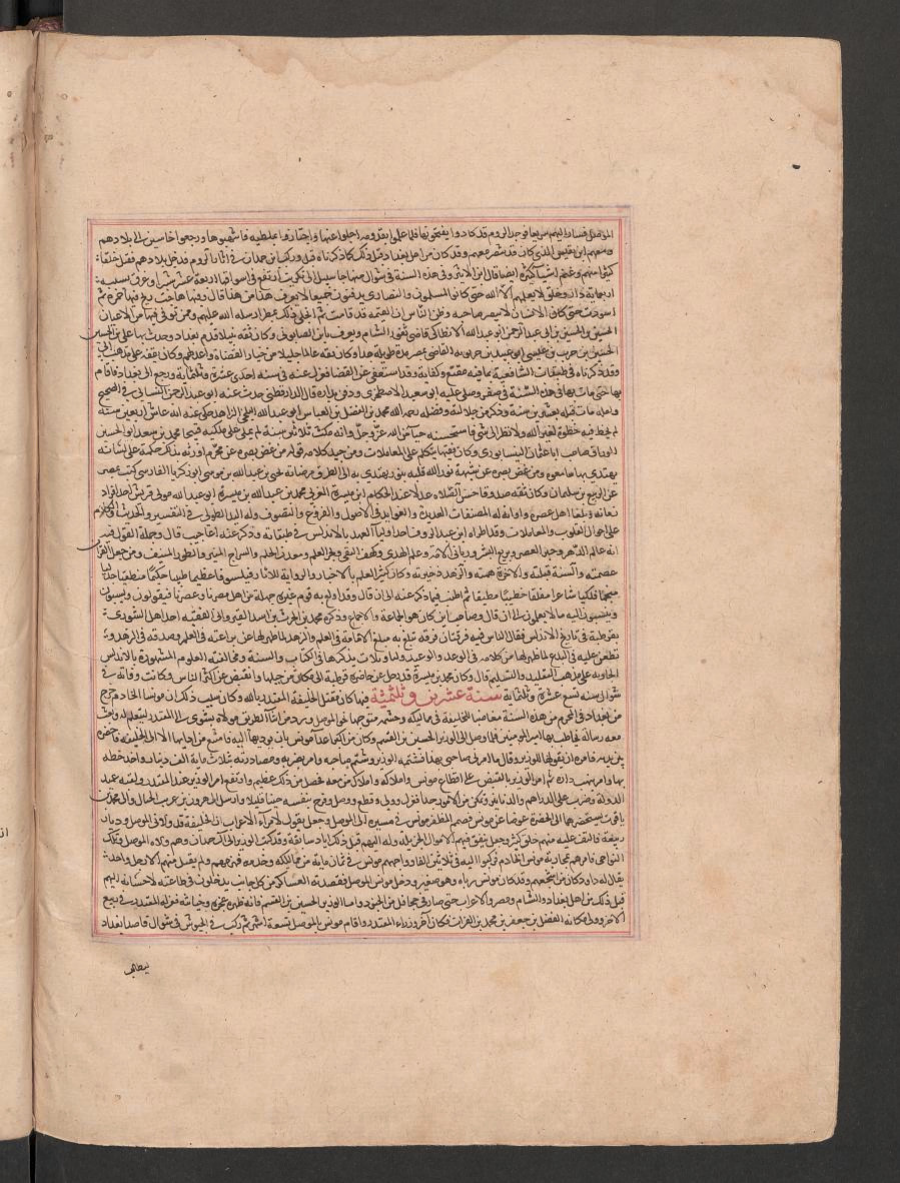 الموصل فسار اليهم سريعا في جيش الروم قد كادوا يفتحونها فلما علموا بقدومه اجلوا عنها واجتازوا بملطية فانتهبوها ورجعوا خاسئين الى بلادهم
ومعهم ابن نفيس الذي كان قد تنصر معهم وقد كان من اهل بغداد قبل ذلك كما ذكرناه قبل وركب ابن حمدان في اثار الروم فدخل بلادهم فقتل خلقا
كثيرا منهم وغنم اشيا كثيرة ايضا قال ابن الاثير وفي هذه السنة في شوال منها جا سيل الى تكريت ارتفع في اسواقها اربعة عشر شبرا وغرق بسببه
اربعماية دار وخلق لا يعلمهم الا الله حتى كان المسلمون والنصارى يدفنون جميعا لا يعرف هذا من هذا قال وفيها هاجت ريح فيها حمرة ثم
اسودت حتى كان الانسان لا يبصر صاحبه وظن الناس ان القيمة قد قامت ثم انجلى ذلك بمطر ارسله الله عليهم وممن توفي فيها من الاعيان
الحسين بن ابي عبد الرحمن ابو عبد الله الانطاكي قاضي ثغور الشام ويعرف بابن الصابوني وكان ثقة نبيلا قدم بغداد وحدث بها علي بن الحسين
الحسين بن حرب بن عيسى ابو عبيد بن حربويه القاضي بمصر مدة طويلة جدا وكان ثقة عالما جليلا من خيار القضاة واعدلهم وكان يتفقه على مذهب ابي
وقد ذكرناه في طبقات الشافعية بما فيه مقنع وكفاية وقد استعفى عن القضا فعزل عنه في سنه احدى عشرة وثلثماية ورجع الى بغداد فاقام
بها حتى مات بها في هذه السنة في صفر وصلى عليه ابو سعيد الاصطخري ودفن بداره قال الدارقطني حدث عنه ابو عبد الرحمن النسائي في الصحيح
ولعله مات قبله بعشرين سنة وذكر من جلالته وفضله رحمه الله محمد بن الفضل بن العباس ابو عبد الله البلخي الزاهد حكي عنه انه عاش اربعين سنة
لم يخط فيه خطوة لغير الله ولا نظر الى شي فاستحسنه حياء من الله عز وجل وانه مكث ثلاثين سنة لم يمل على ملكيه قبيحا محمد بن سعد ابو الحسين
الوراق صاحب ابا عثمان النيسابوري وكان فقيها يتكلم على المعاملات ومن جيد كلامه قوله من غض بصره عن محرم اورثه بذلك حكمة على لسانه
يهتدي بها سامعوه ومن غض بصره عن شبهة نور الله قلبه بنور يهتدي به الى طرق مرضاته يحيى بن عبد الله بن موسى ابو زكريا الفارسي كتب بمصر
عن الربيع بن سليمان وكان ثقة صدوقا حسن الصلاة عدلا عند الحكام ابن ميسرة المغربي محمد بن عبد الله بن ميسرة ابو عبد الله مولى قريش احد افراد
على احوال القلوب والمعاملات
انه عالم الدهر وحبر العصر وربيع البشر ورباني الامة وعلم الهدى وكهف التقى وبحر العلم ومعدن الحلم والسراج المنير والطود المنيف ومن جعل القران
عصمته والسنة قبلته والاخرة همته والزهد ذخيرته وكان كثير العلم بالاخبار والرواية للاثار فيلسوفا عظيما طبيبا حكيما منطقيا جدليا
منجما فلكيا شاعرا مفلقا خطيبا
بقرطبة في تاريخ الاندلس فقال الناس فيه فرقتان فرقة تبلغ به مبلغ الامامة في العلم والزهد لما ظهر لها من براعته في العلم وصدقه في الزهد و
تطعن عليه في البدع لما ظهر لها من كلامه في الوعد والوعيد وتاويلات يذكرها في الكتاب والسنة ومخالفته العلوم المشهورة بالاندلس
الجارية على مذهب التقليد والتسليم قال وكان محمد بن ميسرة قد رحل عن حاضرة قرطبة الى مكان من جبلها وانقبض عن اكثر الناس وكانت وفاته في
شوال سنه تسع عشرة وثلثماية سنة عشرين وثلثمئة فيها كان مقتل الخليفة المقتدر بالله وكان سبب ذلك ان مونسا الخادم خرج
من بغداد في المحرم من هذه السنة مغاضبا للخليفة في مماليكه وحشمه متوجها نحو الموصل ورد من اثناء الطريق مولاه بشرى الى المقتدر ليستعلم له وبعث
معه رسالة يخاطب بها امير المومنين فلما وصل الى الوزير الحسين بن القسم وكان من اكبر اعداء مونس بان يوديها اليه فامتنع من ادايها الا الى الخليفة فاحضره
بين يديه فامره ان يقولها للوزير وقال ما امرني صاحبي بهذا فشتمه الوزير وشتم صاحبه وامر بضربه ومصادرته بثلاث ماية الف دينار واخذ خطه
بها وامر بنهب داره ثم امر الوزير بالقبض على اقطاع مونس واملاكه واملاك من معه فحصل من ذلك عظيم وارتفع امر الوزير عند المقتدر ولقبه عميد
الدولة وضرب على الدراهم والدنانير وتمكن من الامور جدا فعزل وولى وقطع ووصل وفرح بنفسه حينا قليلا وارسل الى هرون بن عريب الحال والى محمد بن
ياقوت يستحضرهما الى الحضرة عوضا عن مونس فصمم المظفر مونس في مسيره الى الموصل وجعل يقول لامراء الاعراب ان الخليفة قد ولاني الموصل وديار
ربيعة فالتف عليه منهم خلق كثير وجعل ينفق فيهم الاموال الجزيلة وله اليهم قبل ذلك اياد سابقة وقد كتب الوزير الى آل حمدان وهم ولاة الموصل وتلك
النواحي يامرهم بمحاربة مونس الخادم فركبوا اليه في ثلاثين الفا وواجههم مونس في ثمان ماية من مماليكه وخدمه فهزمهم ولم يقتل منهم الا رجل واحد
يقال له داود كان من اشجعهم وقد كان مونس رباه وهو صغير ودخل مونس الموصل فقصدته العساكر من كل جانب يدخلون في طاعته لاحسانه اليهم
قبل ذلك من اهل بغداد والشام ومصر والاعراب حتى صار في جحافل من الجنود واما الوزير الحسين بن القسم فانه ظهر عجزه وخيانته فعزله المقتدر في ربيع
الاخر وولى مكانه الفضل بن جعفر بن محمد بن الفرات فكان آخر وزراء المقتدر واقام مونس بالموصل تسعة اشهر ثم ركب في الجيوش في شوال قاصدا بغداد